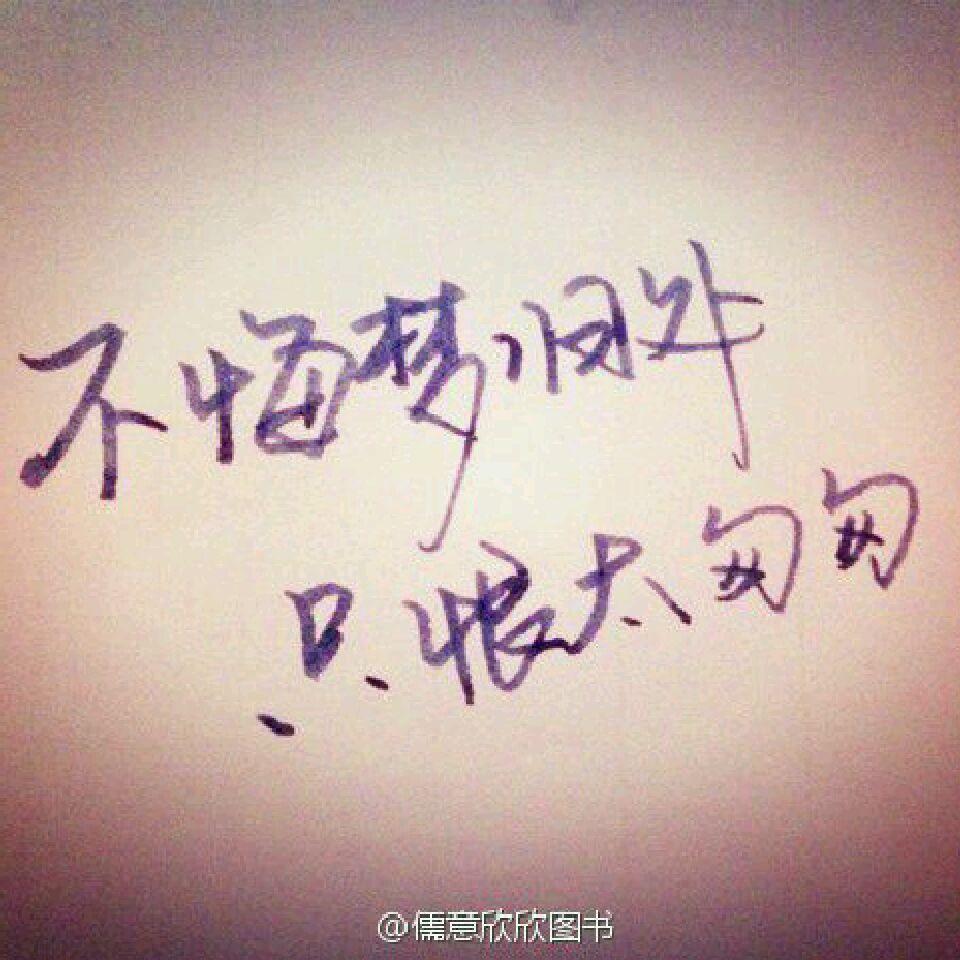 不悔梦归处
只恨太匆匆
@儒意欣欣图书